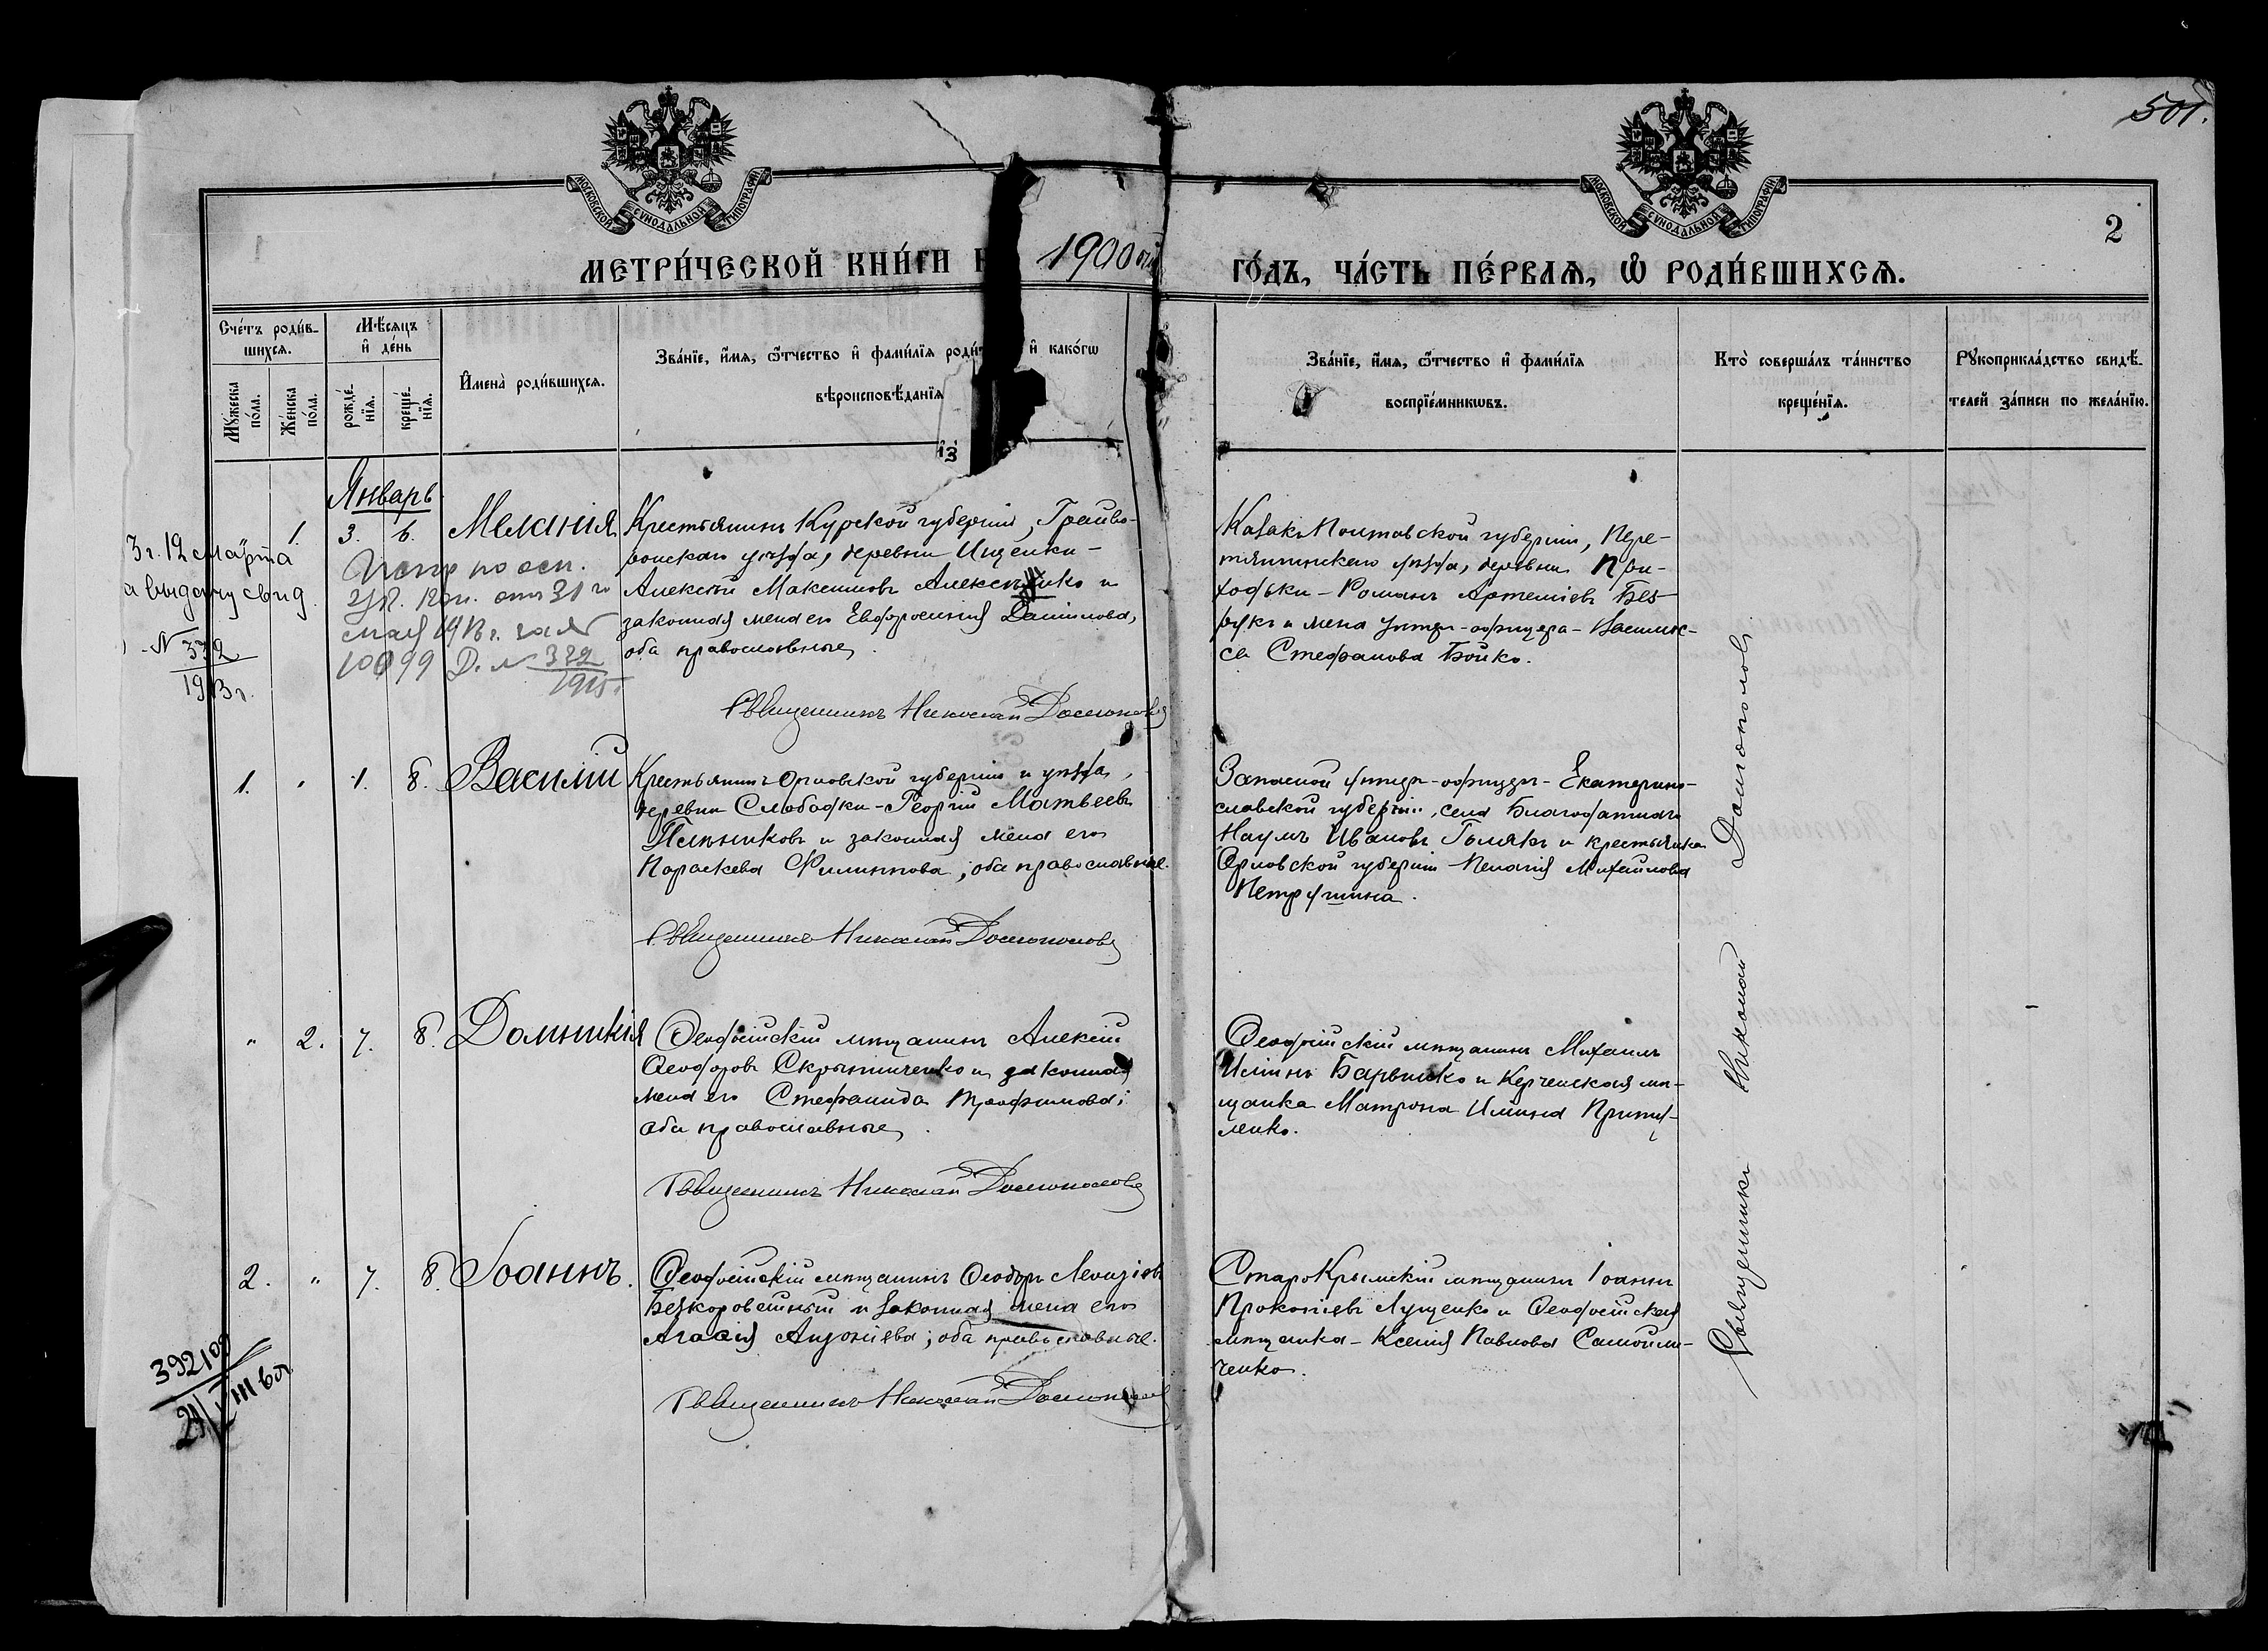 501.
МОСКОВСКОЙ СѴНОДАЛЬНОЙ ТИПОГРАФІИ
МОСКОВСКОЙ СѴНОДАЛЬНОЙ ТИПОГРАФІИ
2
МЕТРИ́ЧЕСКОЙ КНИ́ГИ Н 1900 ый
ГО́ДЪ, ЧА́СТЬ ПЕ́РВАѦ, Ѽ РОДИ́ВШИХСѦ.
Сче́тъ роди́в-
шихсѧ.
Мꙋ́жеска по́ла.
Же́нска по́ла.
Мѣ́сѧцъ
и҆ де́нь
рожде́-
нїѧ.
креще́-
нїѧ.
И҆мена̀ роди́вшихсѧ.
Зва́нїе, и҆́мѧ, ѻ҆́тчество и҆ фами́лїѧ роди́т и҆ како́гѡ
вѣроисповѣ́данїѧ
Зва́нїе, и҆́мѧ, ѻ҆́тчество и҆ фами́лїѧ
воспрїе́мникѡвъ.
Кто̀ соверша́лъ та́инство
креще́нїѧ.
Рꙋкоприкла́дство свидѣ́-
телей за́писи по жела́нїю.
Январь
1. 3. 6. Меланія
Крестьянинъ Курской губерніи, Грайво-
ронскаго уѣзда, деревни Ищенки -
Алексѣй Максимовъ Алексѣенко и
законная жена его Евфросинія Даниилова,
оба православные.
Священникъ Николай Долгополовъ
Казакъ Полтавской губерніи, Пере-
тятинскаго уѣзда, деревни При-
ходьки - Романъ Артеміевъ Без-
рукъ и жена унтеръ-офицера - Васили-
са Стефанова Бойко.
3 г. 12 марта
а выдачу свид.
- N 332
1913 г.
31 го
мая 1915 г. за №
10099 Д. N 332
1915 г.
1. " 1. 8. Василій
Крестьянинъ Орловской губерніи и уѣзда,
деревни Слободки - Георгій Матвѣевъ
и законная жена его
Параскева Филиппова; оба православные.
Священникъ Николай Долгополовъ
Запасной унтеръ-офицеръ - Екатерино-
славской губерніи, села Благодатнаго
Наумъ Ивановъ Голякъ и крестьянка
Орловской губерніи Пелагія Михайлова
Петрушина.
" 2. 7. 8. Домникія
Ѳеодосійскій мѣщанинъ Алексій
Ѳеодоровъ Скрыпниченко и законная
жена его Стефанида Трофимова;
оба православные.
Священникъ Николай Долгополовъ
Ѳеодосійскій мѣщанинъ Михаилъ
Ильинъ Барвинко и Керченская мѣ-
щанка Матрона Ильина Приту-
ленко.
2. " 7. 8. Іоаннъ.
Ѳеодосійскій мѣщанинъ Ѳеодоръ Леонтіевъ
Безкоровайный и законная жена его
Агаѳія Антоніева; оба православные.
Священникъ Николай Долгополовъ
СтароКрымскій мѣщанинъ Іоаннъ
Прокопіевъ Луценко и Ѳеодосійская
мѣщанка - Ксенія Павлова Самойли-
ченко.
Священникъ Николай Долгополовъ